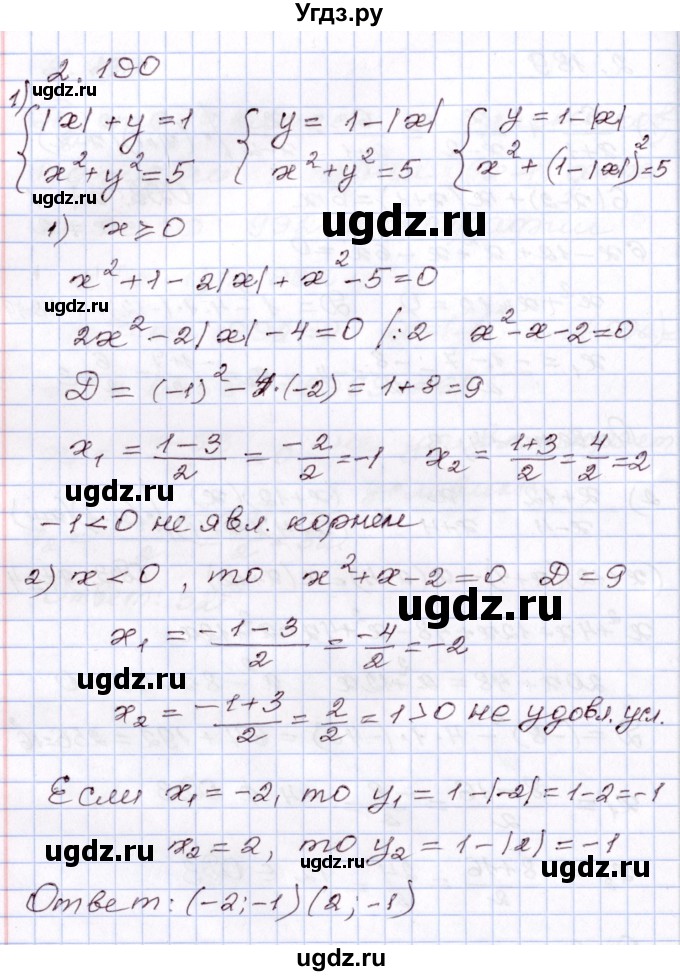 Угдз.ру
2.190
1) { |x| + y = 1 { y = 1 - |x| { y = 1 - |x|
x² + y² = 5 x² + y² = 5 x² + (1 - |x|)² = 5
ugdz.ru
ugdz.ru
1) x ≥ 0
x² + 1 - 2|x| + x² - 5 = 0
ugdz.ru
2x² - 2|x| - 4 = 0 /:2 x² - x - 2 = 0
D = (-1)² - 4·(-2) = 1 + 8 = 9
x₁ = (1-3)/2 = -2/2 = -1 x₂ = (1+3)/2 = 4/2 = 2
ugdz.ru
-1 < 0 не явл. корнем
2) x < 0, то x² + x - 2 = 0 D = 9
ugdz.ru
x₁ = (-1-3)/2 = -4/2 = -2
ugdz.ru
x₂ = (-1+3)/2 = 2/2 = 1 > 0 не удовл. усл.
Если x₁ = -2, то y₁ = 1 - |-2| = 1 - 2 = -1
x₂ = 2, то y₂ = 1 - |2| = -1
ugdz.ru
ugdz.ru
ugdz.ru
Ответ: (-2; -1) (2; -1)
ugdz.ru